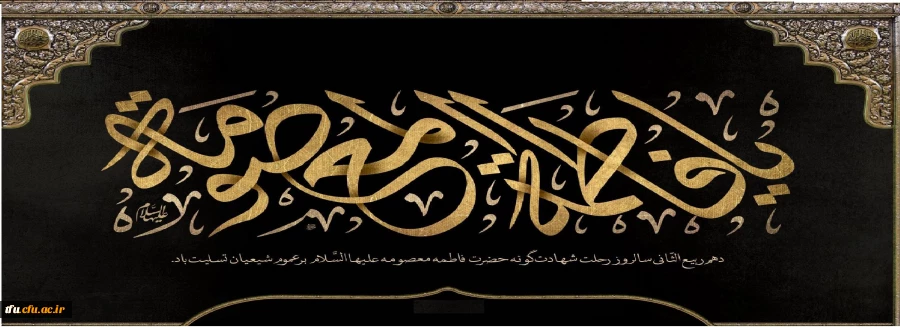 یا فاطمة المعصومة
علیها السلام
دهم ربیع الثانی سالروز رحلت شهادت‌گونه حضرت فاطمه معصومه علیها السَّلام بر عموم شیعیان تسلیت باد.
tfu.cfu.ac.ir